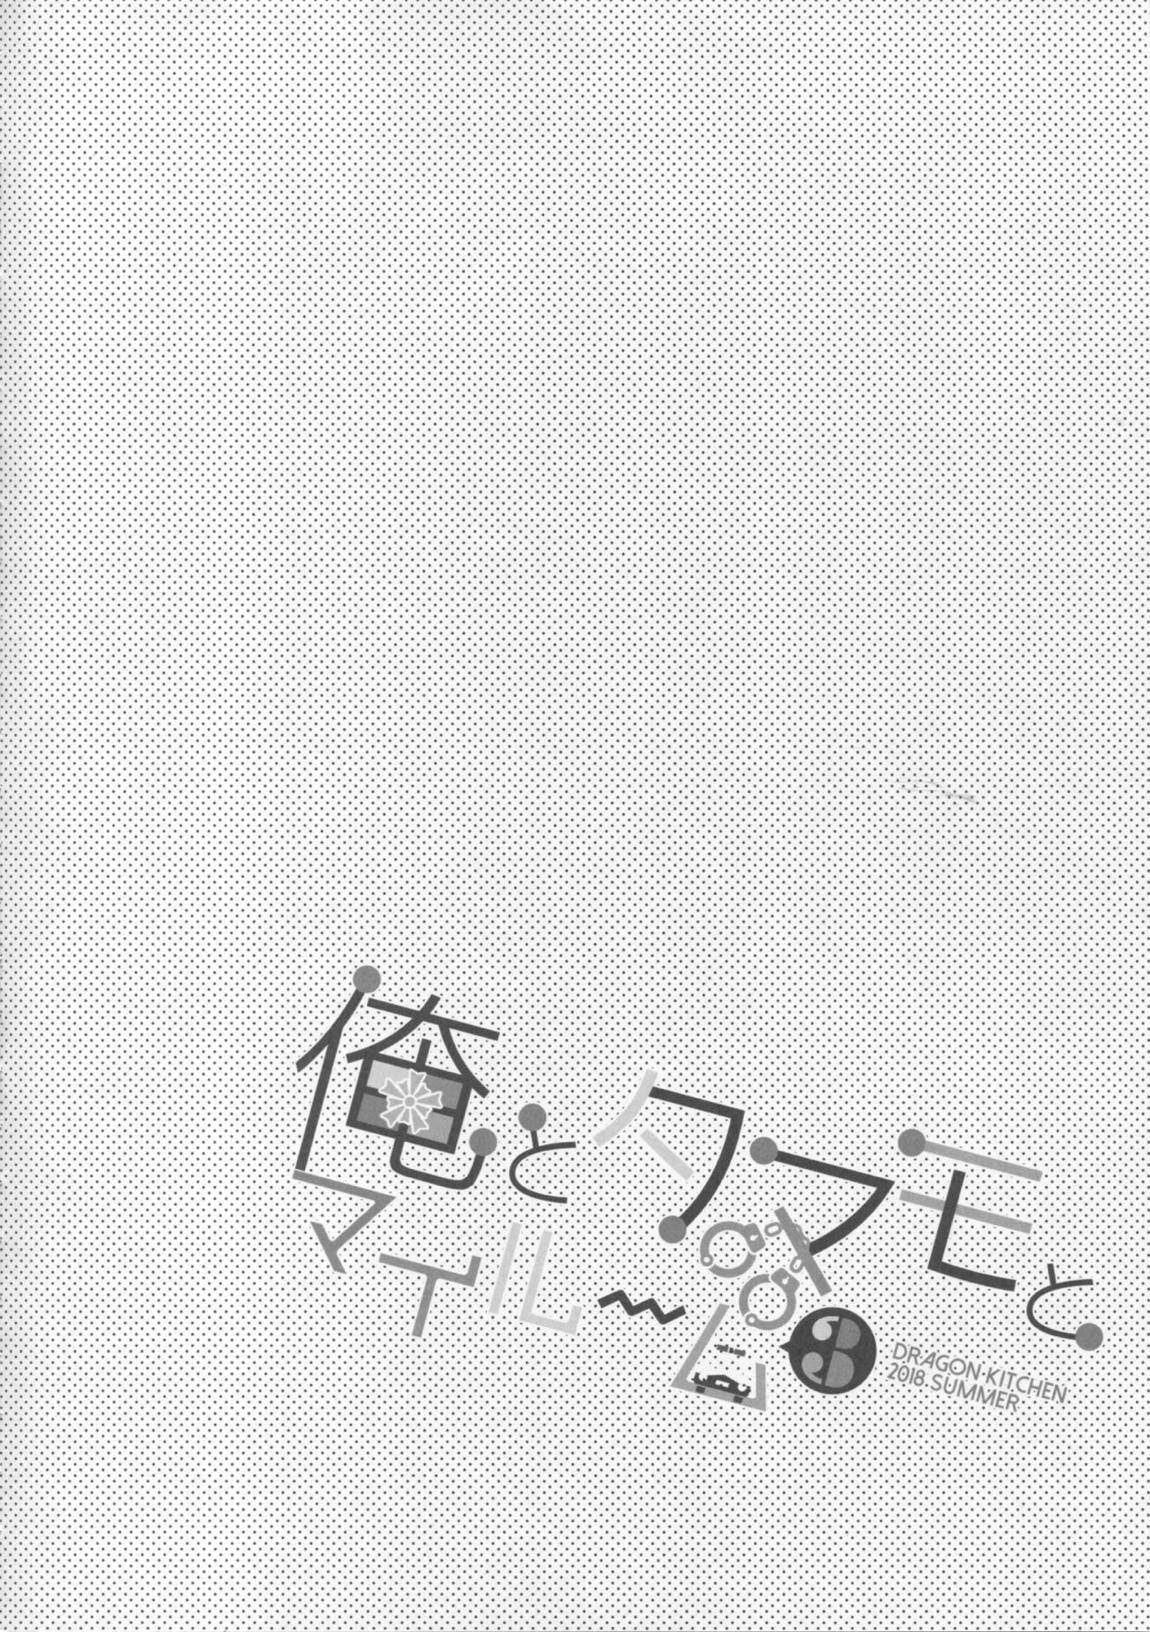 俺とタマモと
マイルーム3
DRAGON·KITCHEN
2018.SUMMER